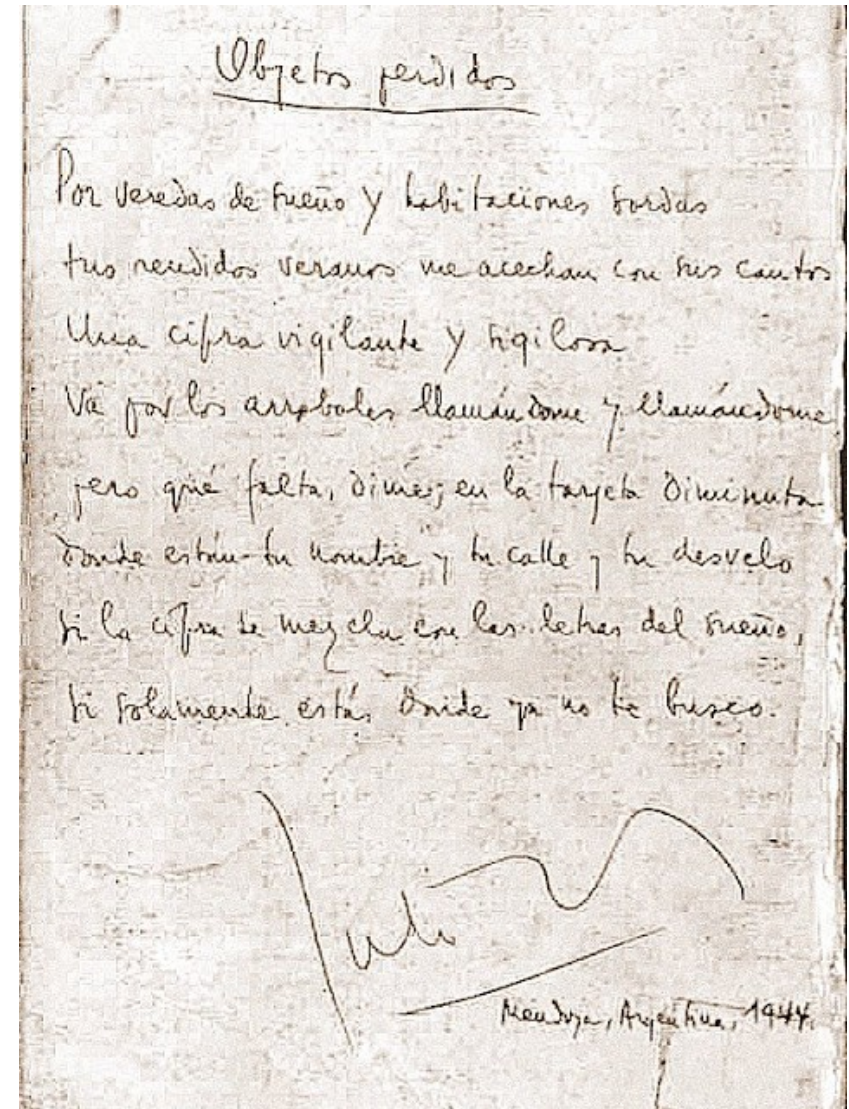 Objetos perdidos
Por veredas de sueño y habitaciones sordas
tus rendidos veranos me acechan con sus cantos
Una cifra vigilante y sigilosa
Va por los arrabales llamándome y llamándome
pero qué falta, dime, en la tarjeta diminuta
donde están tu nombre y tu calle y tu desvelo
si la cifra se mezcla con las letras del sueño,
si solamente estás donde ya no te busco.
Julio
Mendoza, Argentina, 1944.